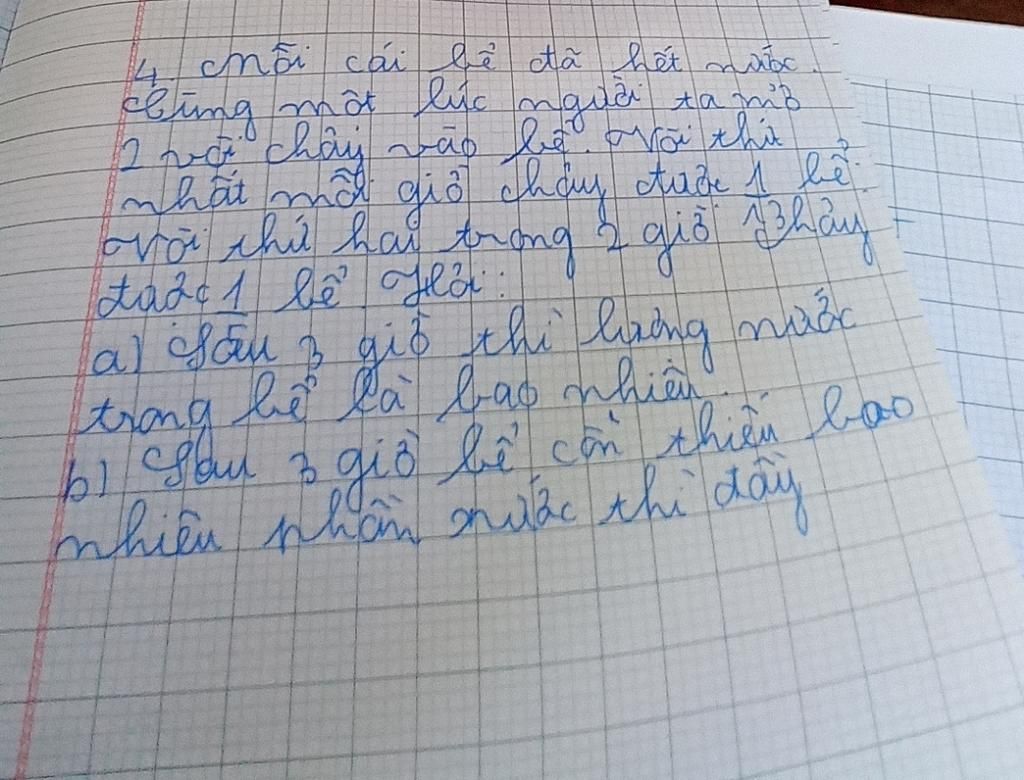 4. Một cái bể đã hết nước.
Cùng một lúc người ta mở
2 vòi chảy vào bể. Vòi thứ
nhất mỗi giờ chảy được 1 bể.
Vòi thứ hai trong 2 giờ 13 chảy
được 1 bể Hỏi:
a) Sau 3 giờ thì lượng nước
trong bể là bao nhiêu.
b) Sau 3 giờ bể còn thiếu bao
nhiêu phần nước thì đầy